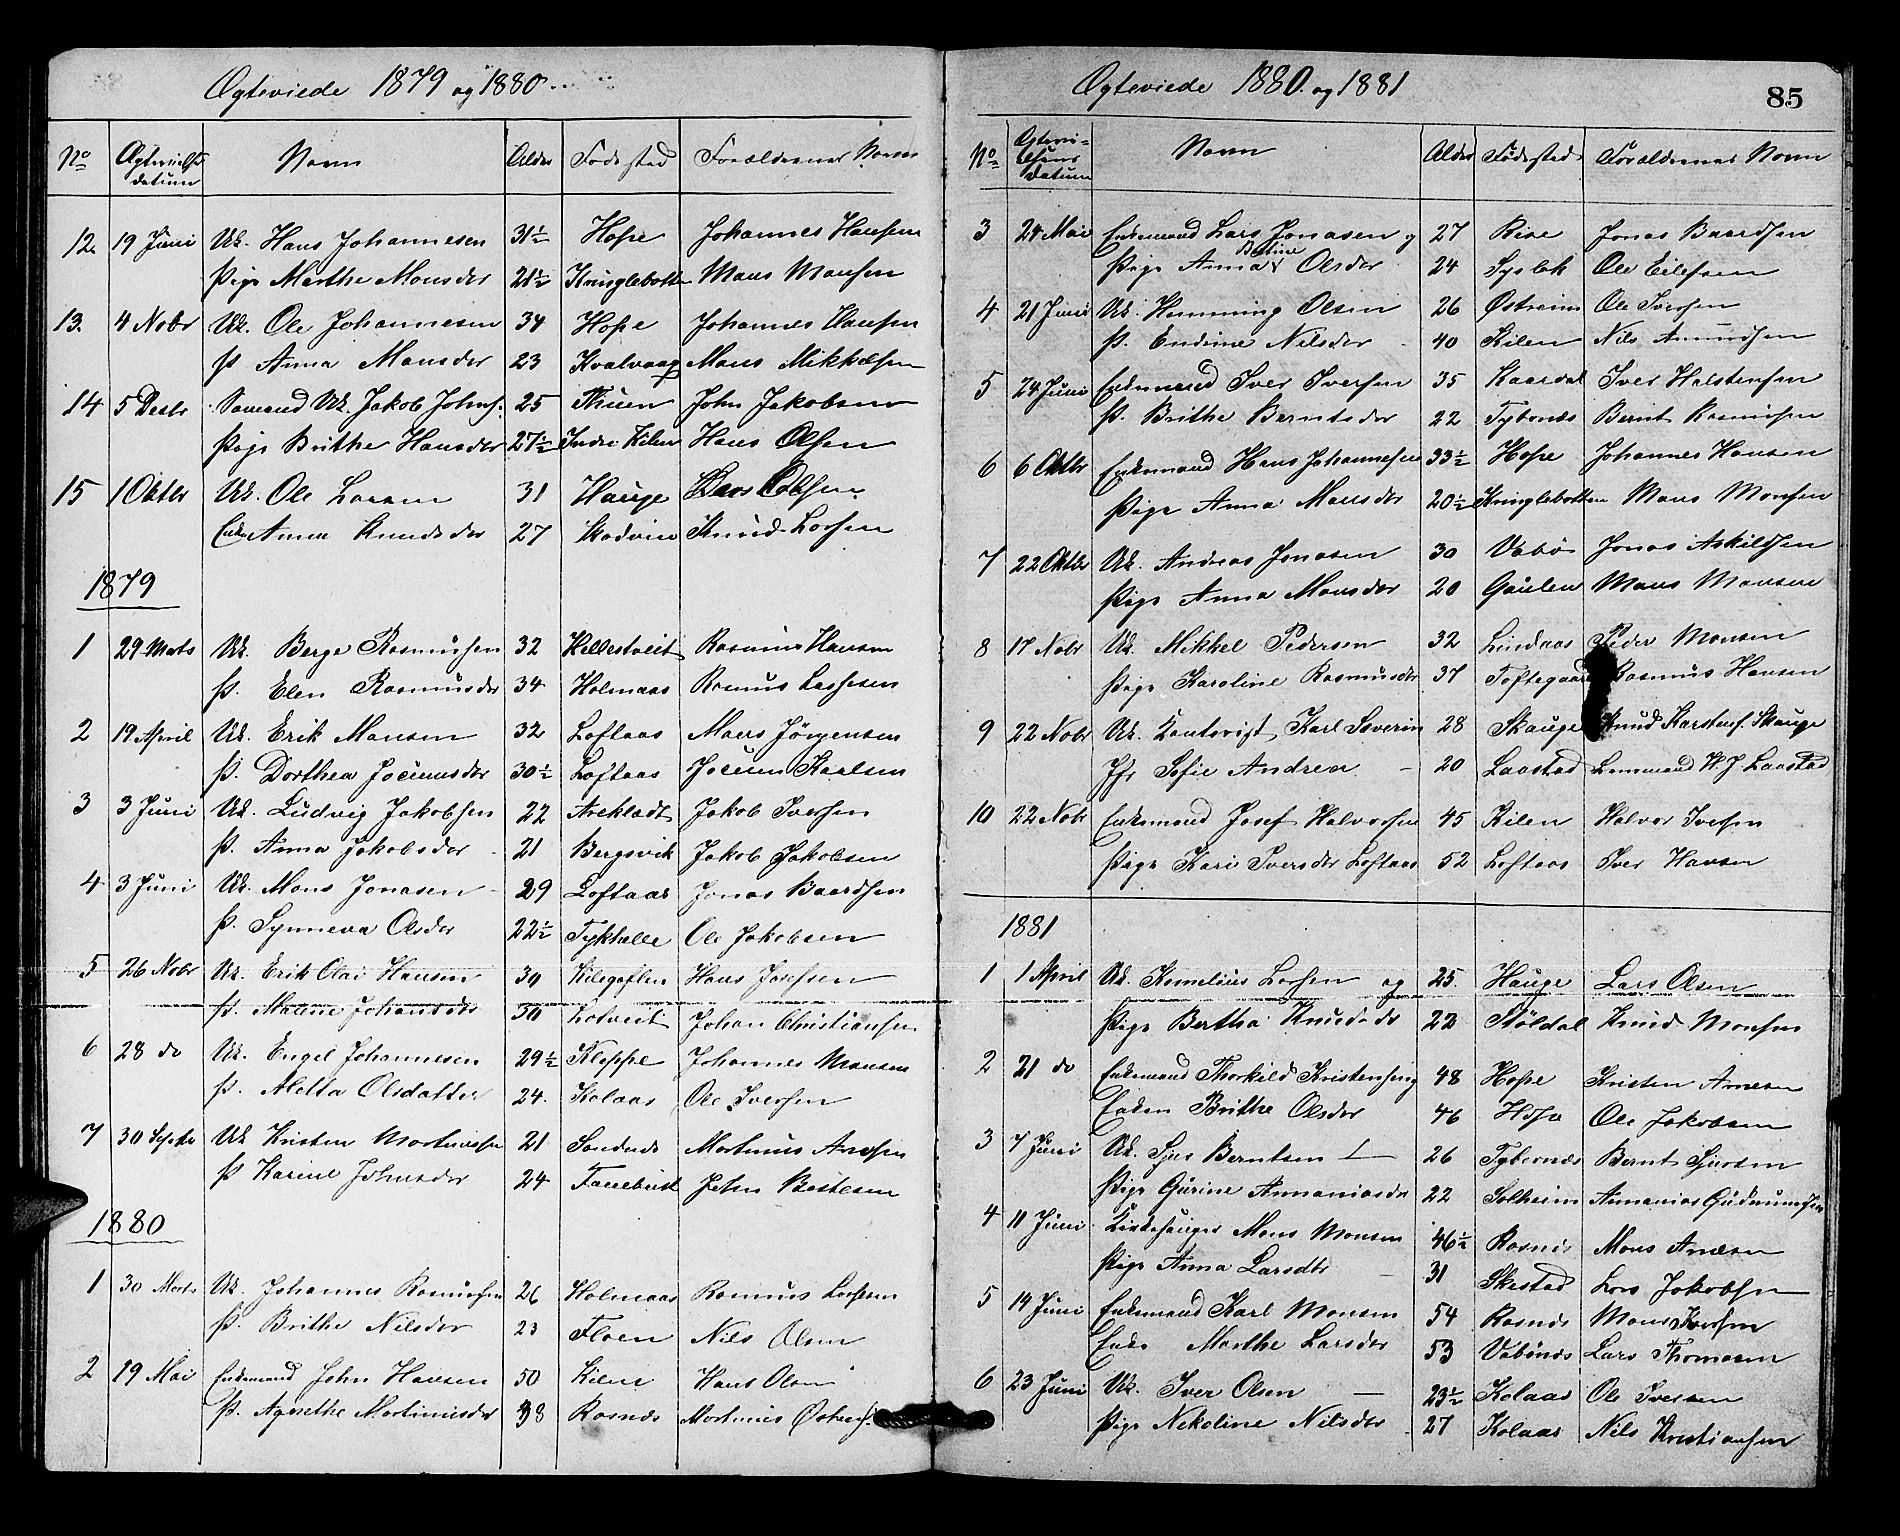 Ægteviede 1879 og 1880
No Ægtevielses datum Navn Alder Fødested Forældrenes Navn
12 19 Juni Uk. Hans Johannesen 31½ Hope Johannes Hansen
Pige Marthe Monsdor 21½ Kringlebotten Mons Monsen
13. 4 Nobr Uk. Ole Johannesen 34 Hope Johannes Hansen
P. Anna Monsdor 23 Kvalvaag Mons Mikkelsen
14 5 Decbr Uk. Jakob Johns. 25 Thuen John Jakobsen
Pige Brithe Hansdor 27½ Indre Kilen Hans Olsen
15 1 Oktbr Uk. Ole Larsen 31 Hauge Lars Olsen
Enke Anna Knudsdor 27 Skodvin Knud Larsen
1879
1 29 Marts Uk. Berge Rasmussen 32 Hillestveit Rasmus Hansen
P. Elen Rasmusdor 34 Holmaas Rasmus Lassesen
2 19 April Uk. Erik Monsen 32 Loftaas Mons Jörgensen
P. Dorthea Jocumsdor 30½ Loftaas Jocum Karlsen
3 3 Juni Uk. Ludvig Jakobsen 22 Areklædt Jakob Iversen
P. Anna Jakobsdor 21 Bergsvik Jakob Jakobsen
4 3 Juni Uk. Mons Jonasen 29 Loftaas Jonas Baardsen
P. Synneva Olsdor 22½ Tykhelle Ole Jakobsen
5 26 Nobr Uk. Erik Olai Hansen 39 Hans Josefsen
P. Malene Johansdor 30 Lotveit Johan Christiansen
6 28 do Uk. Engel Johannesen 29½ Kleppe Johannes Monsen
P. Metta Olsdatter 24. Kolaas Ole Iversen
7 30 Septbr Uk Kristen Mortinussen 21 Mortinus Arnesen
P Karine Johnsdor 24 John Bertesen
1880
1 30 Marts Uk. Johannes Rasmussen 26 Holmaas Rasmus Lassesen
P. Brithe Nilsdor 23 Floen Nils Olsen
2 19 Mai Enkemand John Hansen 50 Kilen Hans Olsen
P. Agnethe Mortinusdor 38 Rosnes Mortinus
Ægteviede 1880 og 1881
85
No Ægtevielsens Datum Navn Alder Fødested Forældrenes Navn
3 24 Mai Enkemand Lars Jonasen og 27 Rise Jonas Baardsen
Pige Anna Batine Olsdor 24 Syslek Ole Eilefsen
4 21 Juni Uk. Hemming Olsen 26 Østreim Ole Iversen
P. Endrine Nilsdor 40 Kilen Nils Amundsen
5 24 Juni Enkemand Iver Iversen 35 Kaardal Iver Halstensen
P. Brithe Berntsdor 22 Tybernæs Bernt Rasmussen
6 6 Oktbr Enkemand Hans Johannesen 33½ Hope Johannes Hansen
Pige Anna Monsdor 20½ Kringlebotten Mons Monsen
7 22 Oktbr Uk. Andreas Jonasen 30 Vabø Jonas Askildsen
Pige Anna Monsdor 20 Gaulen Mons Monsen
8 17 Nobr Uk. Mikkel Pedersen 32 Lindaas Peder Monsen
Pige Karoline Rasmusdor 37 Toftegaard Rasmus Hansen
9 22 Nobr Uk. Kantorist Karl Severin 28 Skauge Knud Karstens. Skauge
Jfr Sofie Andrea 20 Laastad Lensmand H. J. Laastad
10 22 Nobr Enkemand Josef Halvorsen 45 Kilen Halvor Iversen
Pige Kari Iversdor Loftaas 52 Loftaas Iver Hansen
1881
1 1 April Uk. Kornelius Larsen og 25. Hauge Lars Olsen
Pige Bertha Knudsdr 22 Stöldal Knud Monsen
2 21 do Enkemand Thorkild Kristensen og 48 Hope Kristen Arnesen
Enken Brithe Olsdor 46 Hope Ole Jakobsen
3 7 Juni Uk. Sjus Berntsen 26 Tybernæs Bernt Sjursen
Pige Gurine Annaniasdr 22 Solheim Annanias Gudmundsen
4 11 Juni Kirkesanger Mons Monsen 46½ Rosnes Mons Andersen
Pige Anna Larsdtr 31 Skistad Lars Jakobsen
5 14 Juni Enkemand Karl Monsen 54 Rosnes Mons Iversen
Enke Marthe Larsdor 53 Vabönes Lars Thomasen
6 23 Juni Uk. Iver Olsen 23½ Kolaas Ole Iversen
Pige Nikoline Nilsdor 27 Kolaas Nils Kristiansen